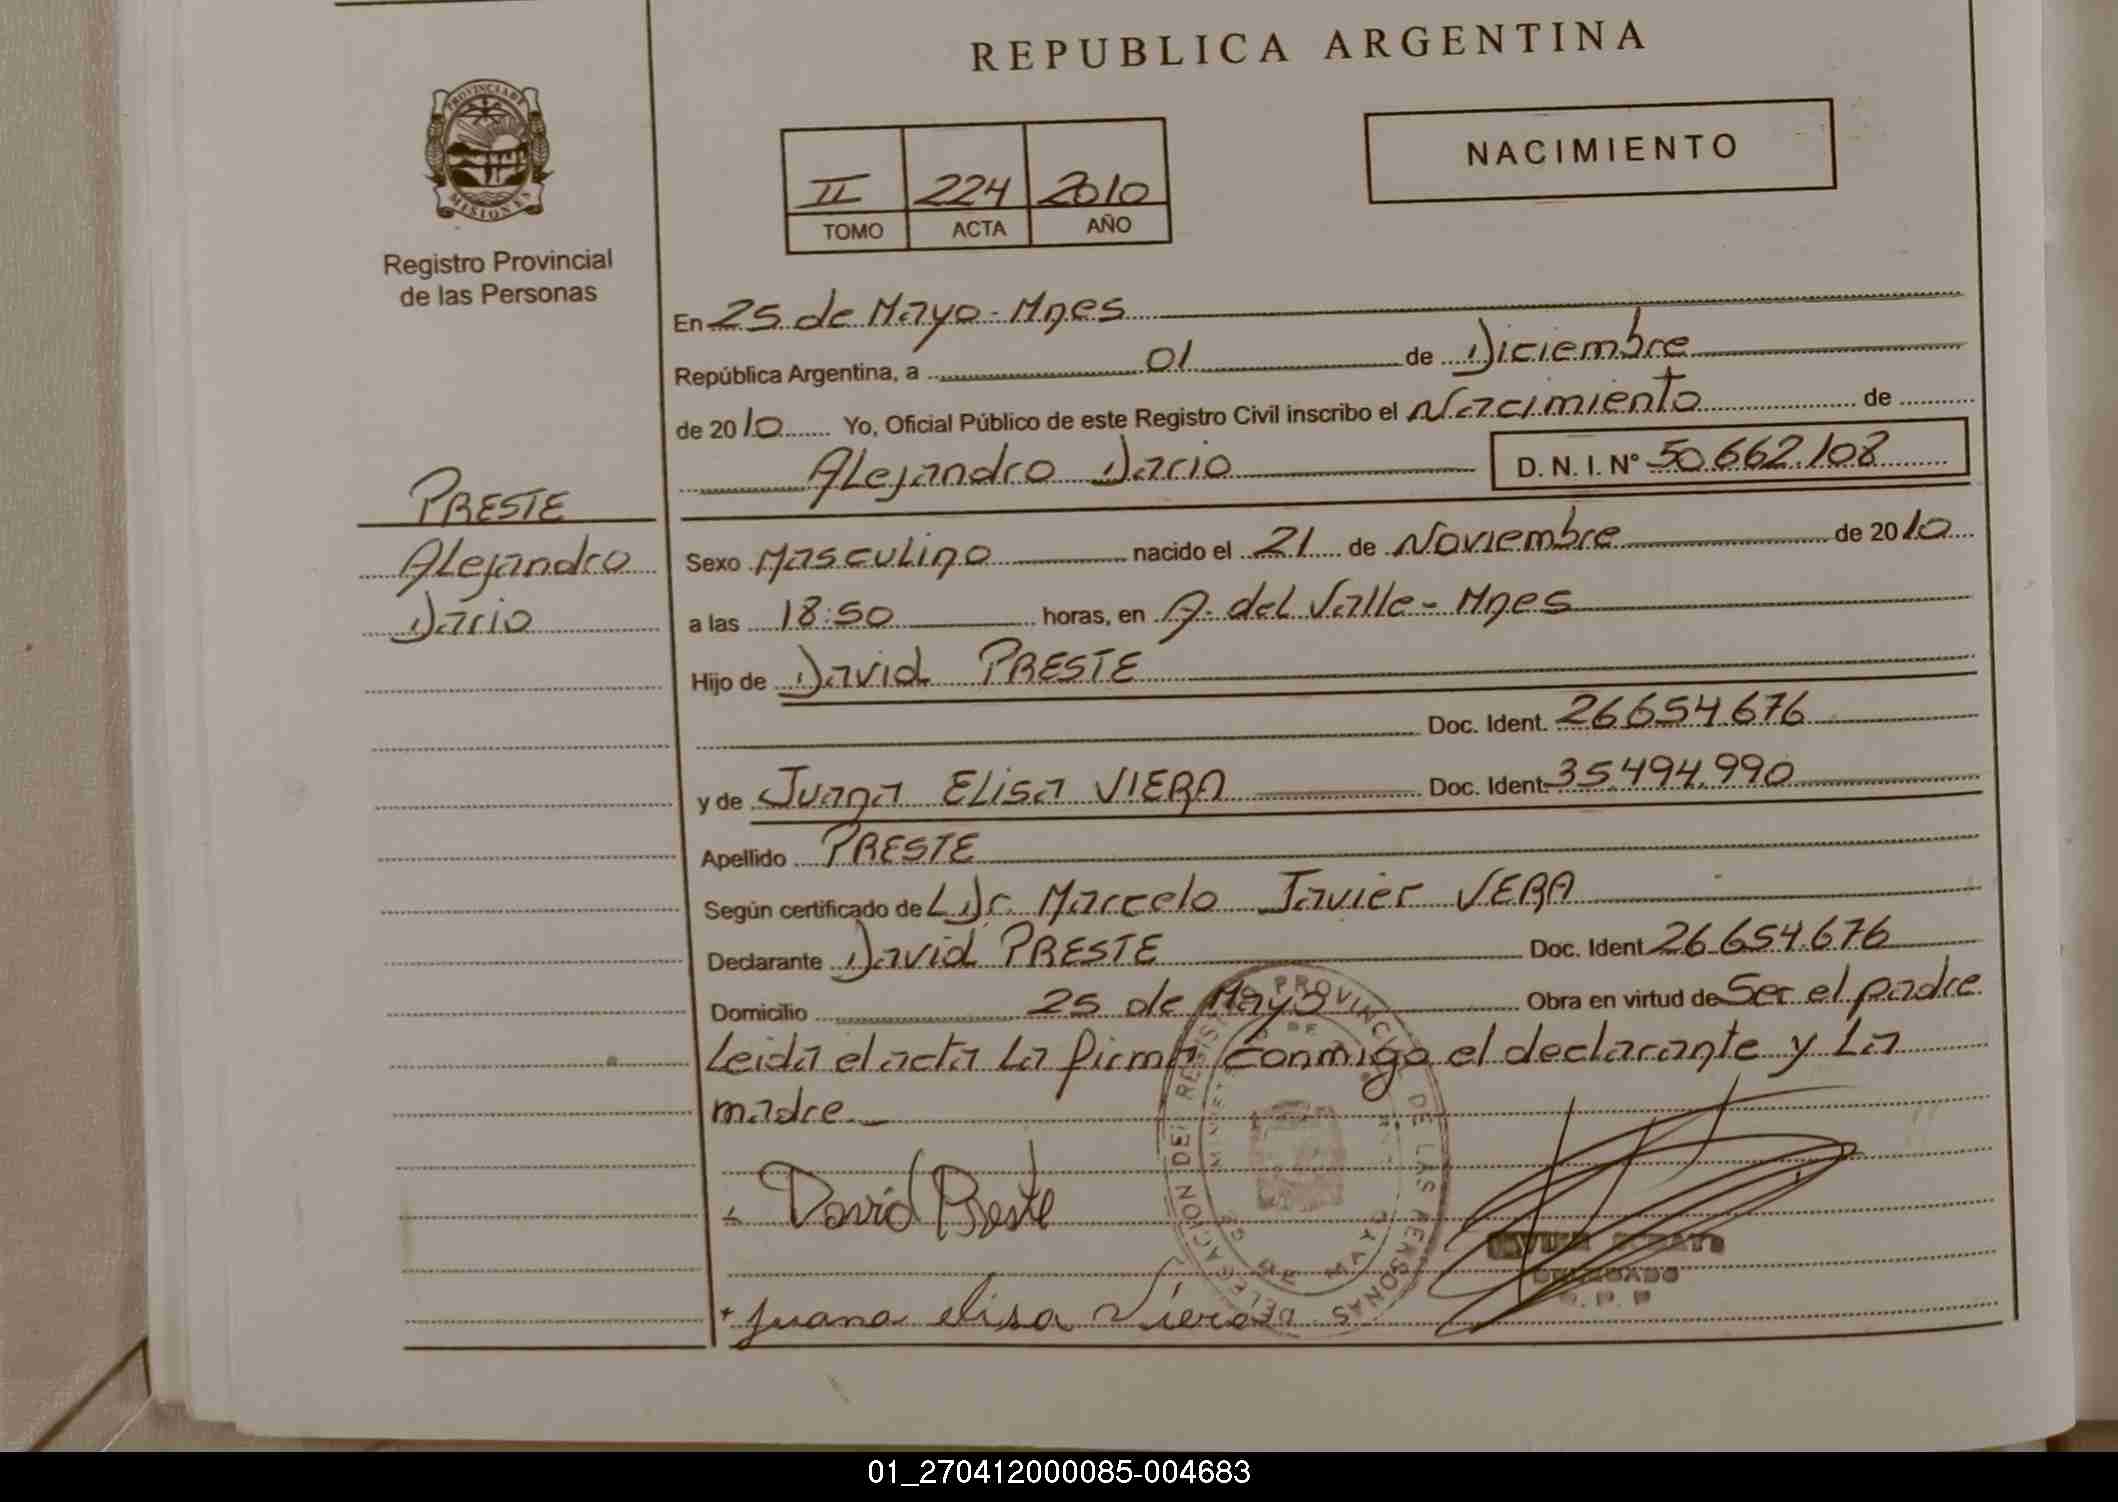 REPUBLICA ARGENTINA
PROVINCIA DE
MISIONES
Registro Provincial
de las Personas
II 224 2010
TOMO ACTA AÑO
NACIMIENTO
En 25 de Mayo - Mnes
República Argentina, a 01 de Diciembre
de 2010 Yo, Oficial Público de este Registro Civil inscribo el Nacimiento de
Alejandro Dario D. N. I. N° 50.662.108
PRESTE
Alejandro
Dario
Sexo Masculino nacido el 21 de Noviembre de 2010
a las 18:50 horas, en A. del Valle - Mnes
Hijo de David PRESTE
Doc. Ident. 26.654.676
y de Juana Elisa VIERA Doc. Ident. 35.494.990
Apellido PRESTE
Según certificado de Dr. Marcelo Javier VERA
Declarante David PRESTE Doc. Ident. 26.654.676
Domicilio 25 de Mayo Obra en virtud de Ser el padre
Leida el acta La firma conmigo el declarante y La
madre
David Preste
DELEGACION DEL REGISTRO PROVINCIAL DE LAS PERSONAS
25 DE MAYO
DELEGADO
+ juana elisa Viera
01_270412000085-004683